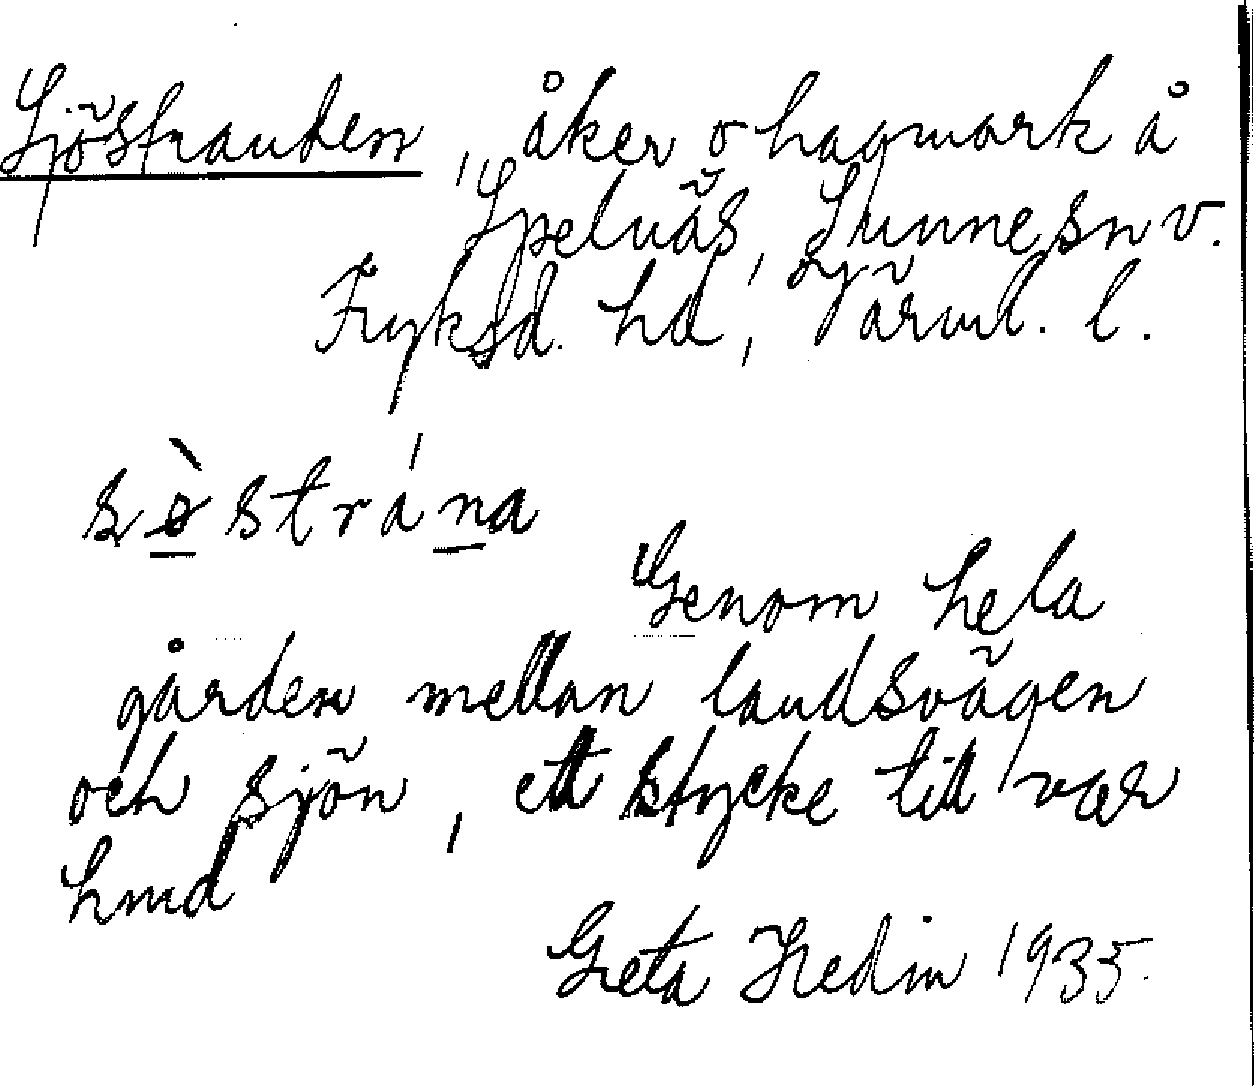 Sjöstranden, åker o hagmark å
Spelnäs, Sunne sn v.
Fryksd. hd, Värml. l.
sø̀strána
Genom hela
gården mellan landsvägen
och sjön, ett stycke till var
hmd
Greta Hedin 1935.